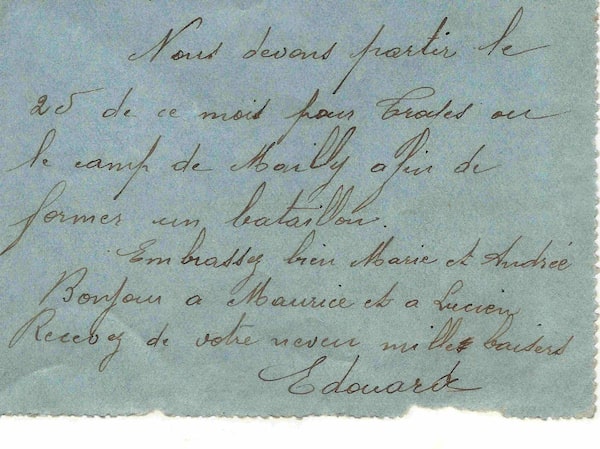 Nous devons partir le
25 de ce mois pour ou
le camp de Mailly afin de
former un bataillon.
Embrassez bien Marie et Andrée
Bonjour a Maurice et a Lucien
Recevez de votre neveu mille baisers
Edouard